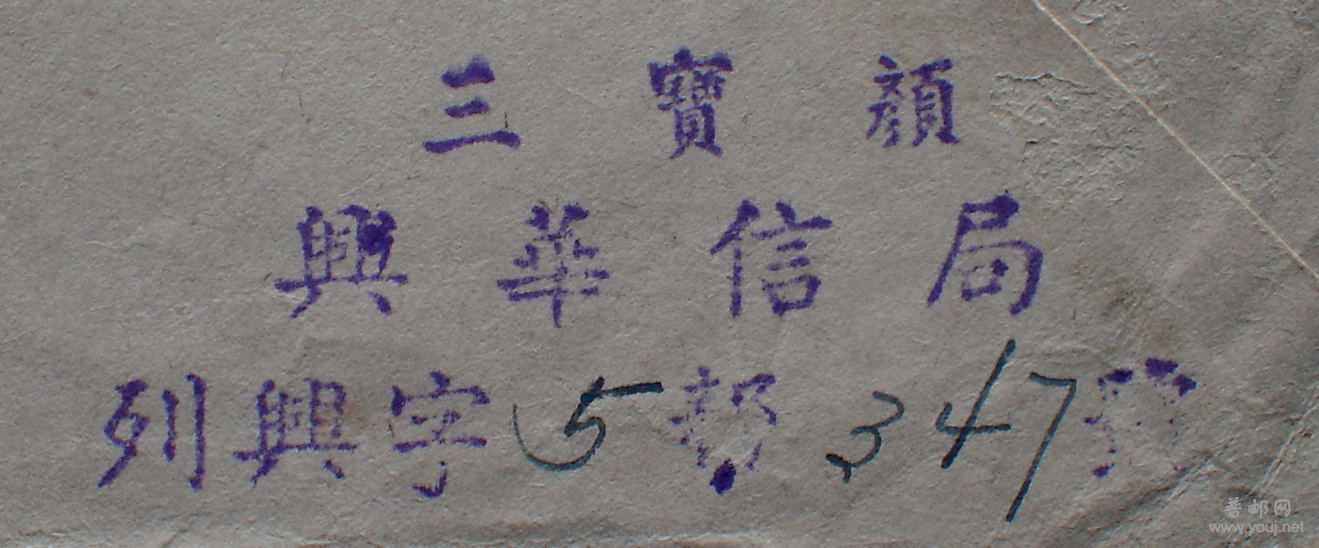 三寶顏
興華信局
列興字5幫347號
普邮网
www.youj.net